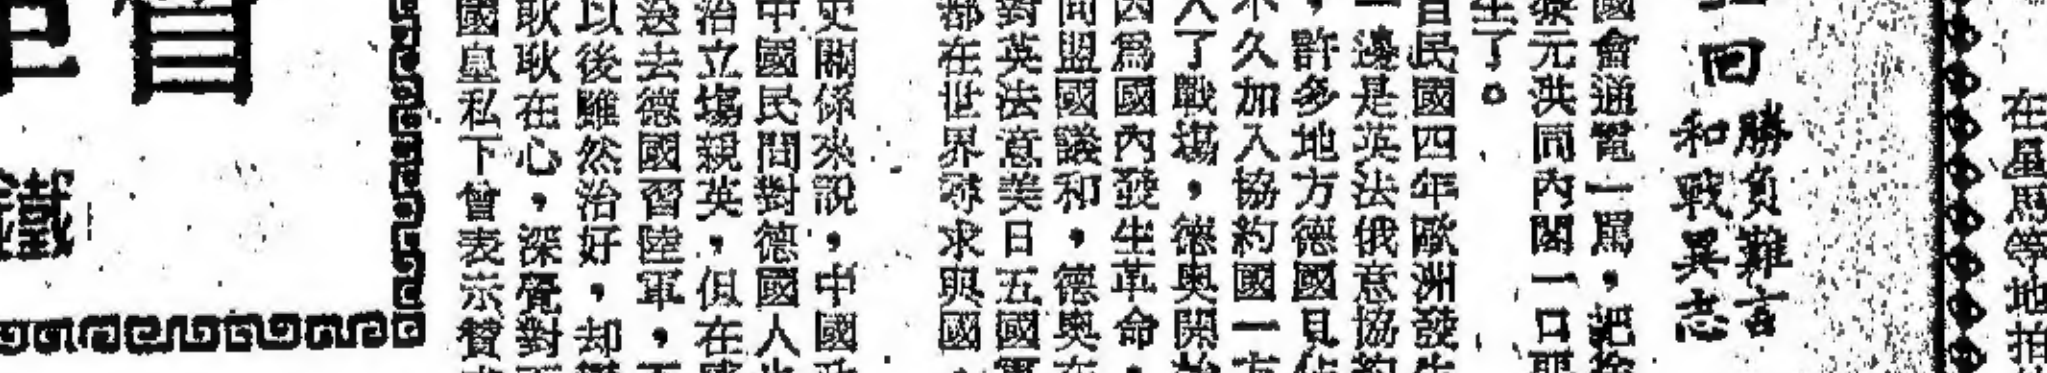 在星馬等地拍
回
勝負難言
和戰異志
國會通電一罵，把徐
黎元洪同內閣一口耶
生了。
民國四年歐洲發生
一邊是英法俄意協約
，許多地方德國見佔
不久加入協約國一方
入了戰場，德奧開始
因爲國內發生革命，
同盟國議和，德奧在
對英法意美日五國軍
都在世界尋求與國
史關係來說，中國政
中國民間對德國人也
治立場親英，但在陸
送去德國習陸軍，不
以後雖然治好，却
耿耿在心，深覺對
國皇私下曾表示贊成
鐵